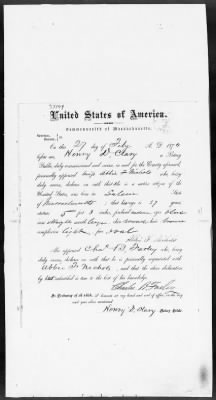 United States of America.
Commonwealth of Massachusetts,
On the 27 day of July A. D. 187
before me, Henry D. Clary a Notary
Public, duly commissioned and sworn in and for the County aforesaid,
personally appeared Miss Abbie F. Nichols who being
duly sworn, declares on oath that she is a native citizen of the
United States, was born in Salem State
of Massachusetts; that her age is 37 years
stature 5 feet 3 inches
complexion light face oval
Abbie F. Nichols
Also appeared Chas. B. Farley who being
duly sworn, declares on oath that he is personally acquainted with
Abbie F. Nichols, and that the above declaration by
is true to the best of his knowledge.
Charles B. Farley
In Testimony of all which, I hereunto set my hand and seal of office, on the day
and year above mentioned.
Henry D. Clary Notary Public